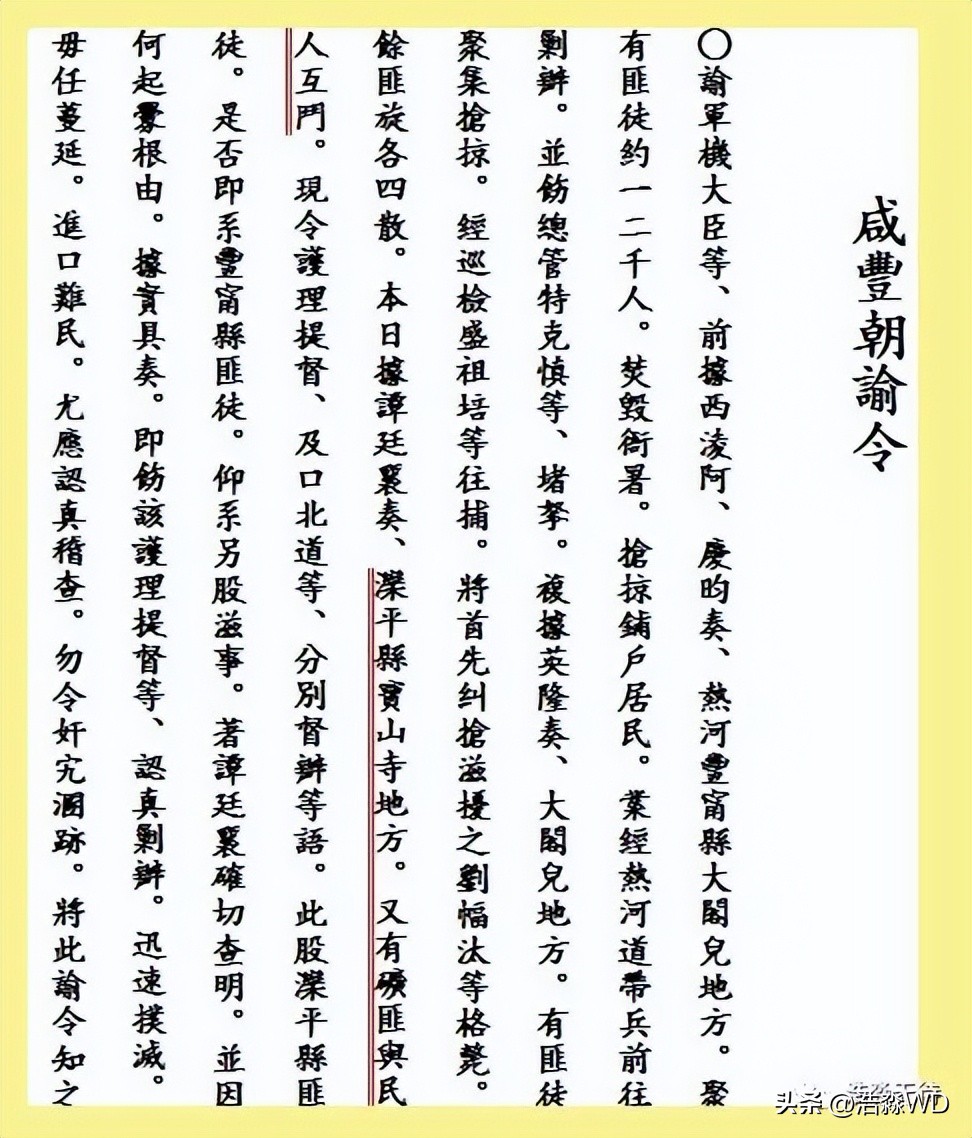 咸豐朝諭令
〇諭軍機大臣等、前據西淩阿、慶昀奏、熱河豐甯縣大閣兒地方。聚
有匪徒約一二千人。焚毀衙署。搶掠鋪戶居民。業經熱河道帶兵前往
剿辦。並飭總管特克慎等、堵拏。複據英隆奏、大閣兒地方。有匪徒
聚集搶掠。經巡檢盛祖培等往捕。將首先糾搶滋擾之劉幅汰等格斃。
餘匪旋各四散。本日據譚廷襄奏、灤平縣寶山寺地方。又有礦匪與民
人互鬥。現令護理提督、及口北道等、分別督辦等語。此股灤平縣匪
徒。是否即系豐甯縣匪徒。仰系另股滋事。著譚廷襄確切查明。並因
何起釁根由。據實具奏。即飭該護理提督等、認真剿辦。迅速撲滅。
毋任蔓延。進口難民。尤應認真稽查。勿令奸宄溷跡。將此諭令知之
头条 @浩淼WD